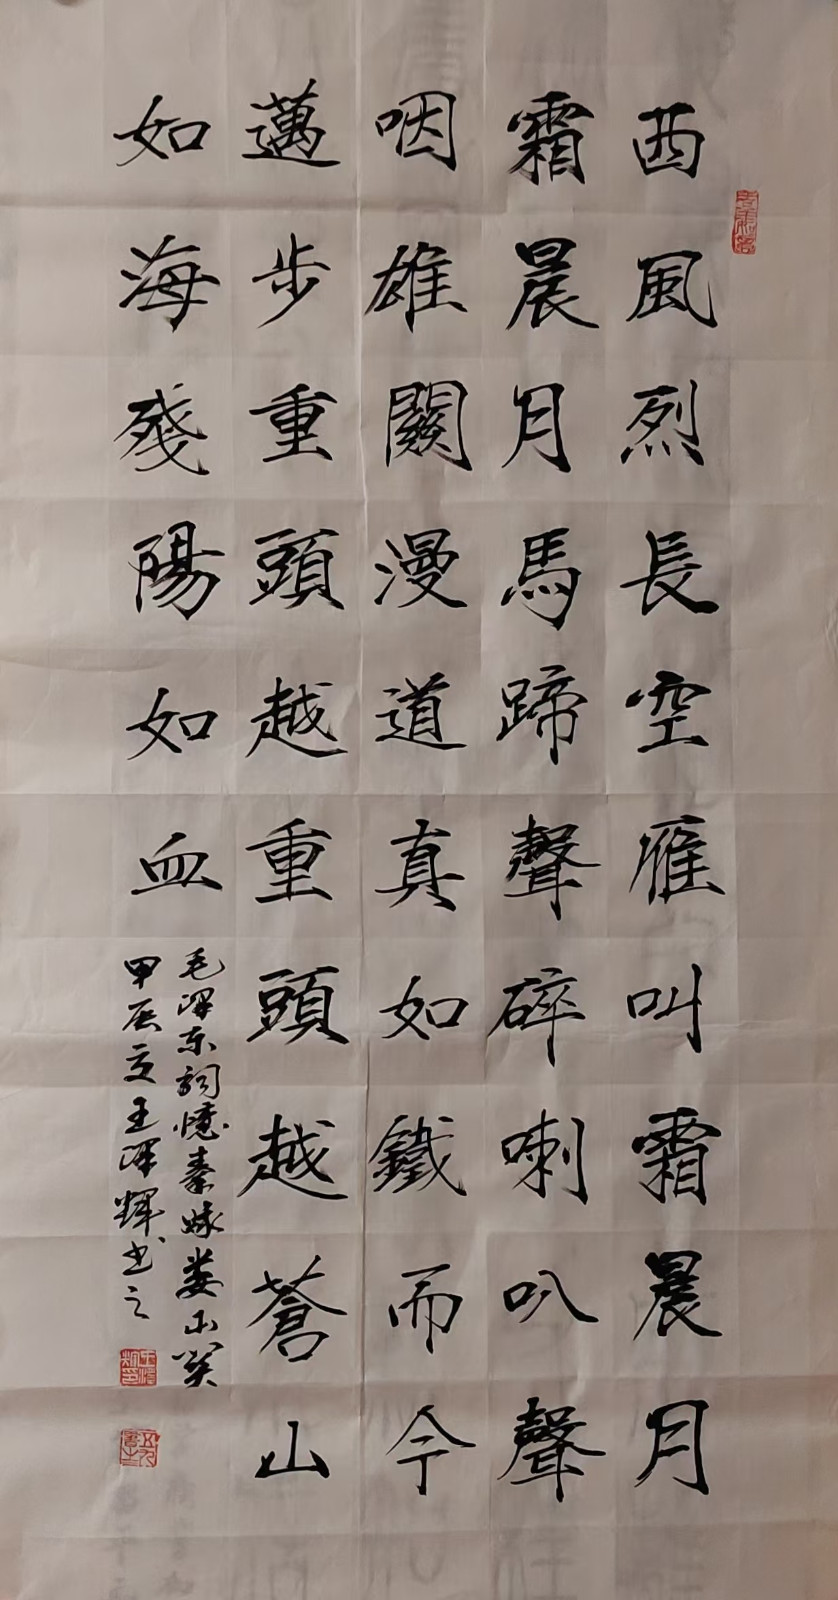 西風烈長空雁叫霜晨月
霜晨月馬蹄聲碎喇叭聲
咽雄關漫道真如鐵而今
邁步重頭越重頭越蒼山
如海殘陽如血
毛泽东詞憶秦娥娄山关
甲辰夏王泽輝书之